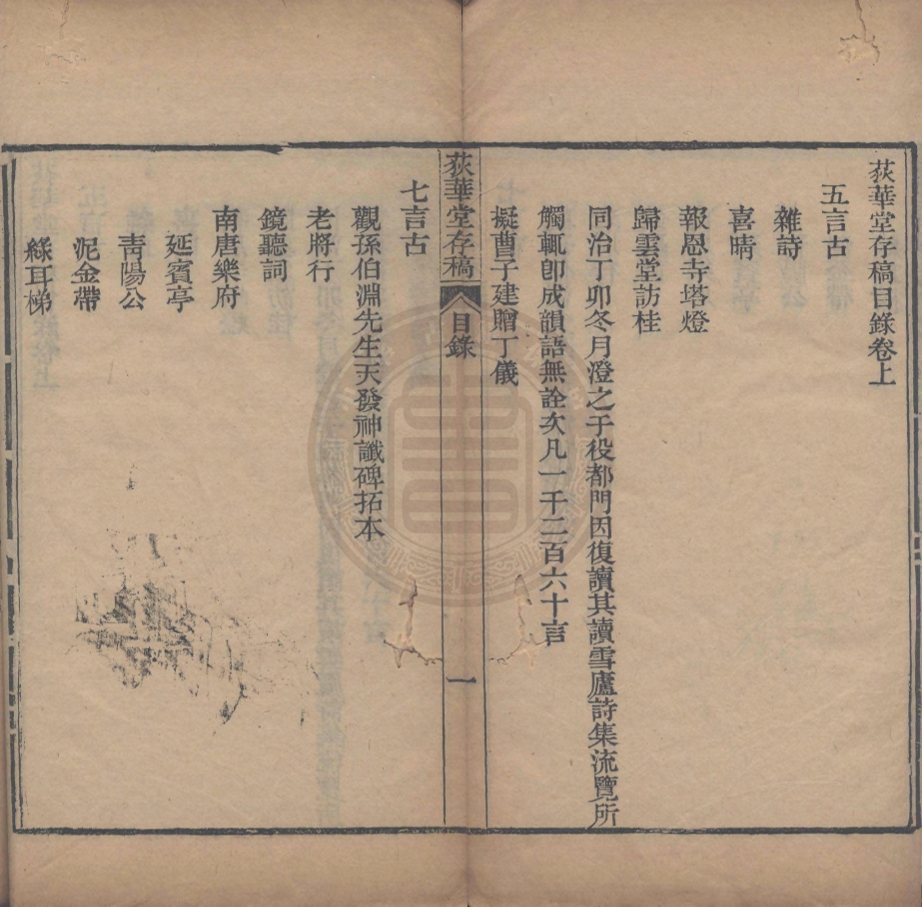 荻華堂存稿目錄卷上
五言古
雜詩
喜晴
報恩寺塔燈
歸雲堂訪桂
同治丁卯冬月澄之于役都門因復讀其讀雪廬詩集流覽所
觸輒卽成韻語無詮次凡一千二百六十言
擬曹子建贈丁儀
荻華堂存稿 目錄 一
七言古
觀孫伯淵先生天發神讖碑拓本
老將行
鏡聽詞
南唐樂府
延賓亭
靑陽公
泥金帶
綠耳梯